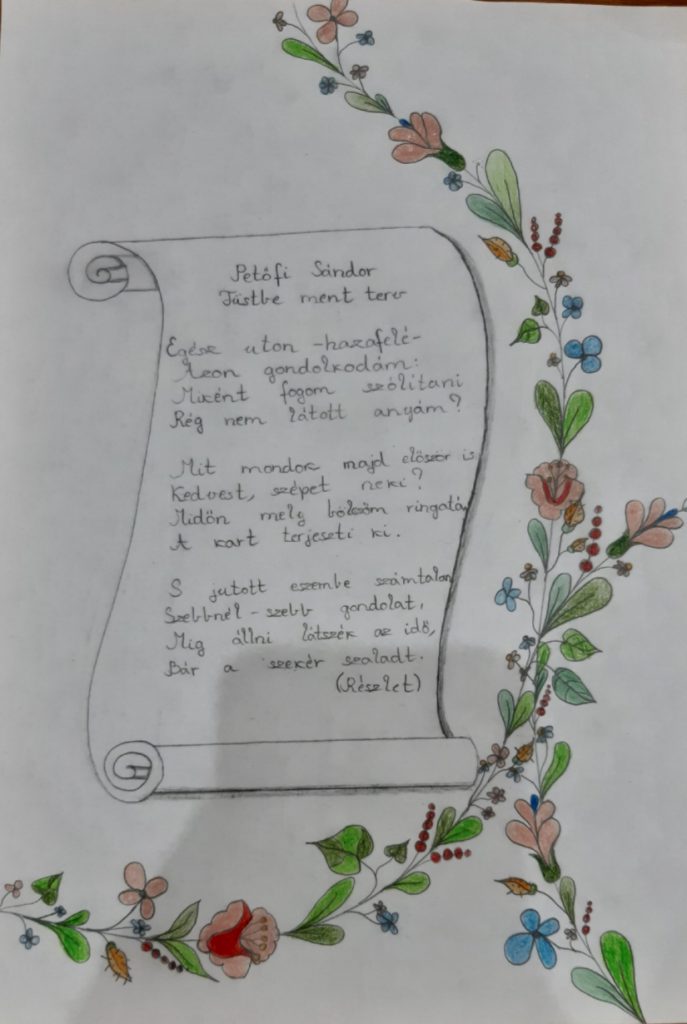 Petőfi Sándor
Füstbe ment terv
Egész uton -hazafelé-
Azon gondolkodám:
Miként fogom szólítani
Rég nem látott anyám?
Mit mondok majd először is
Kedvest, szépet neki?
Midőn mely bölcsőm ringatá,
A kart terjeszti ki.
S jutott eszembe számtalan
Szebbnél-szebb gondolat,
Mig állni látszék az idő,
Bár a szekér szaladt.
(Részlet)